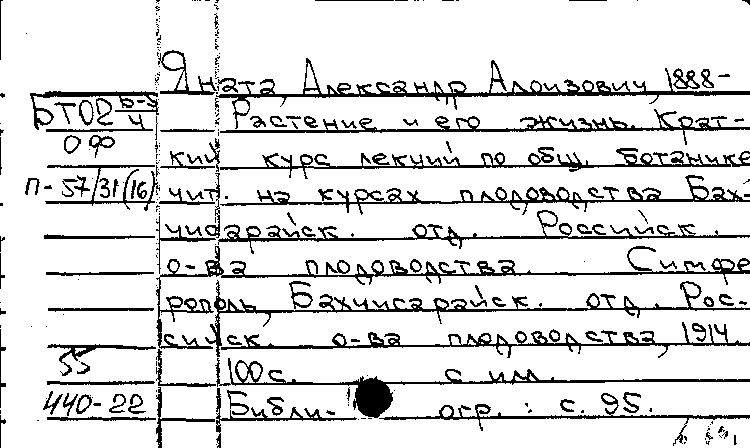 Яната, Александр Алоизович, 1888-
БТО2 Б-5/4
Растение и его жизнь. Крат-
ОФ
кий курс лекций по общ. ботанике
П-57/31(16)
чит. на курсах плодоводства Бах-
чисарайск. отд. Российск.
о-ва плодоводства. Симфе
рополь, Бахчисарайск. отд. Рос-
сийск. о-ва плодоводства, 1914.
55
100 с. с илл.
440-22
Библи- огр.: с. 95.